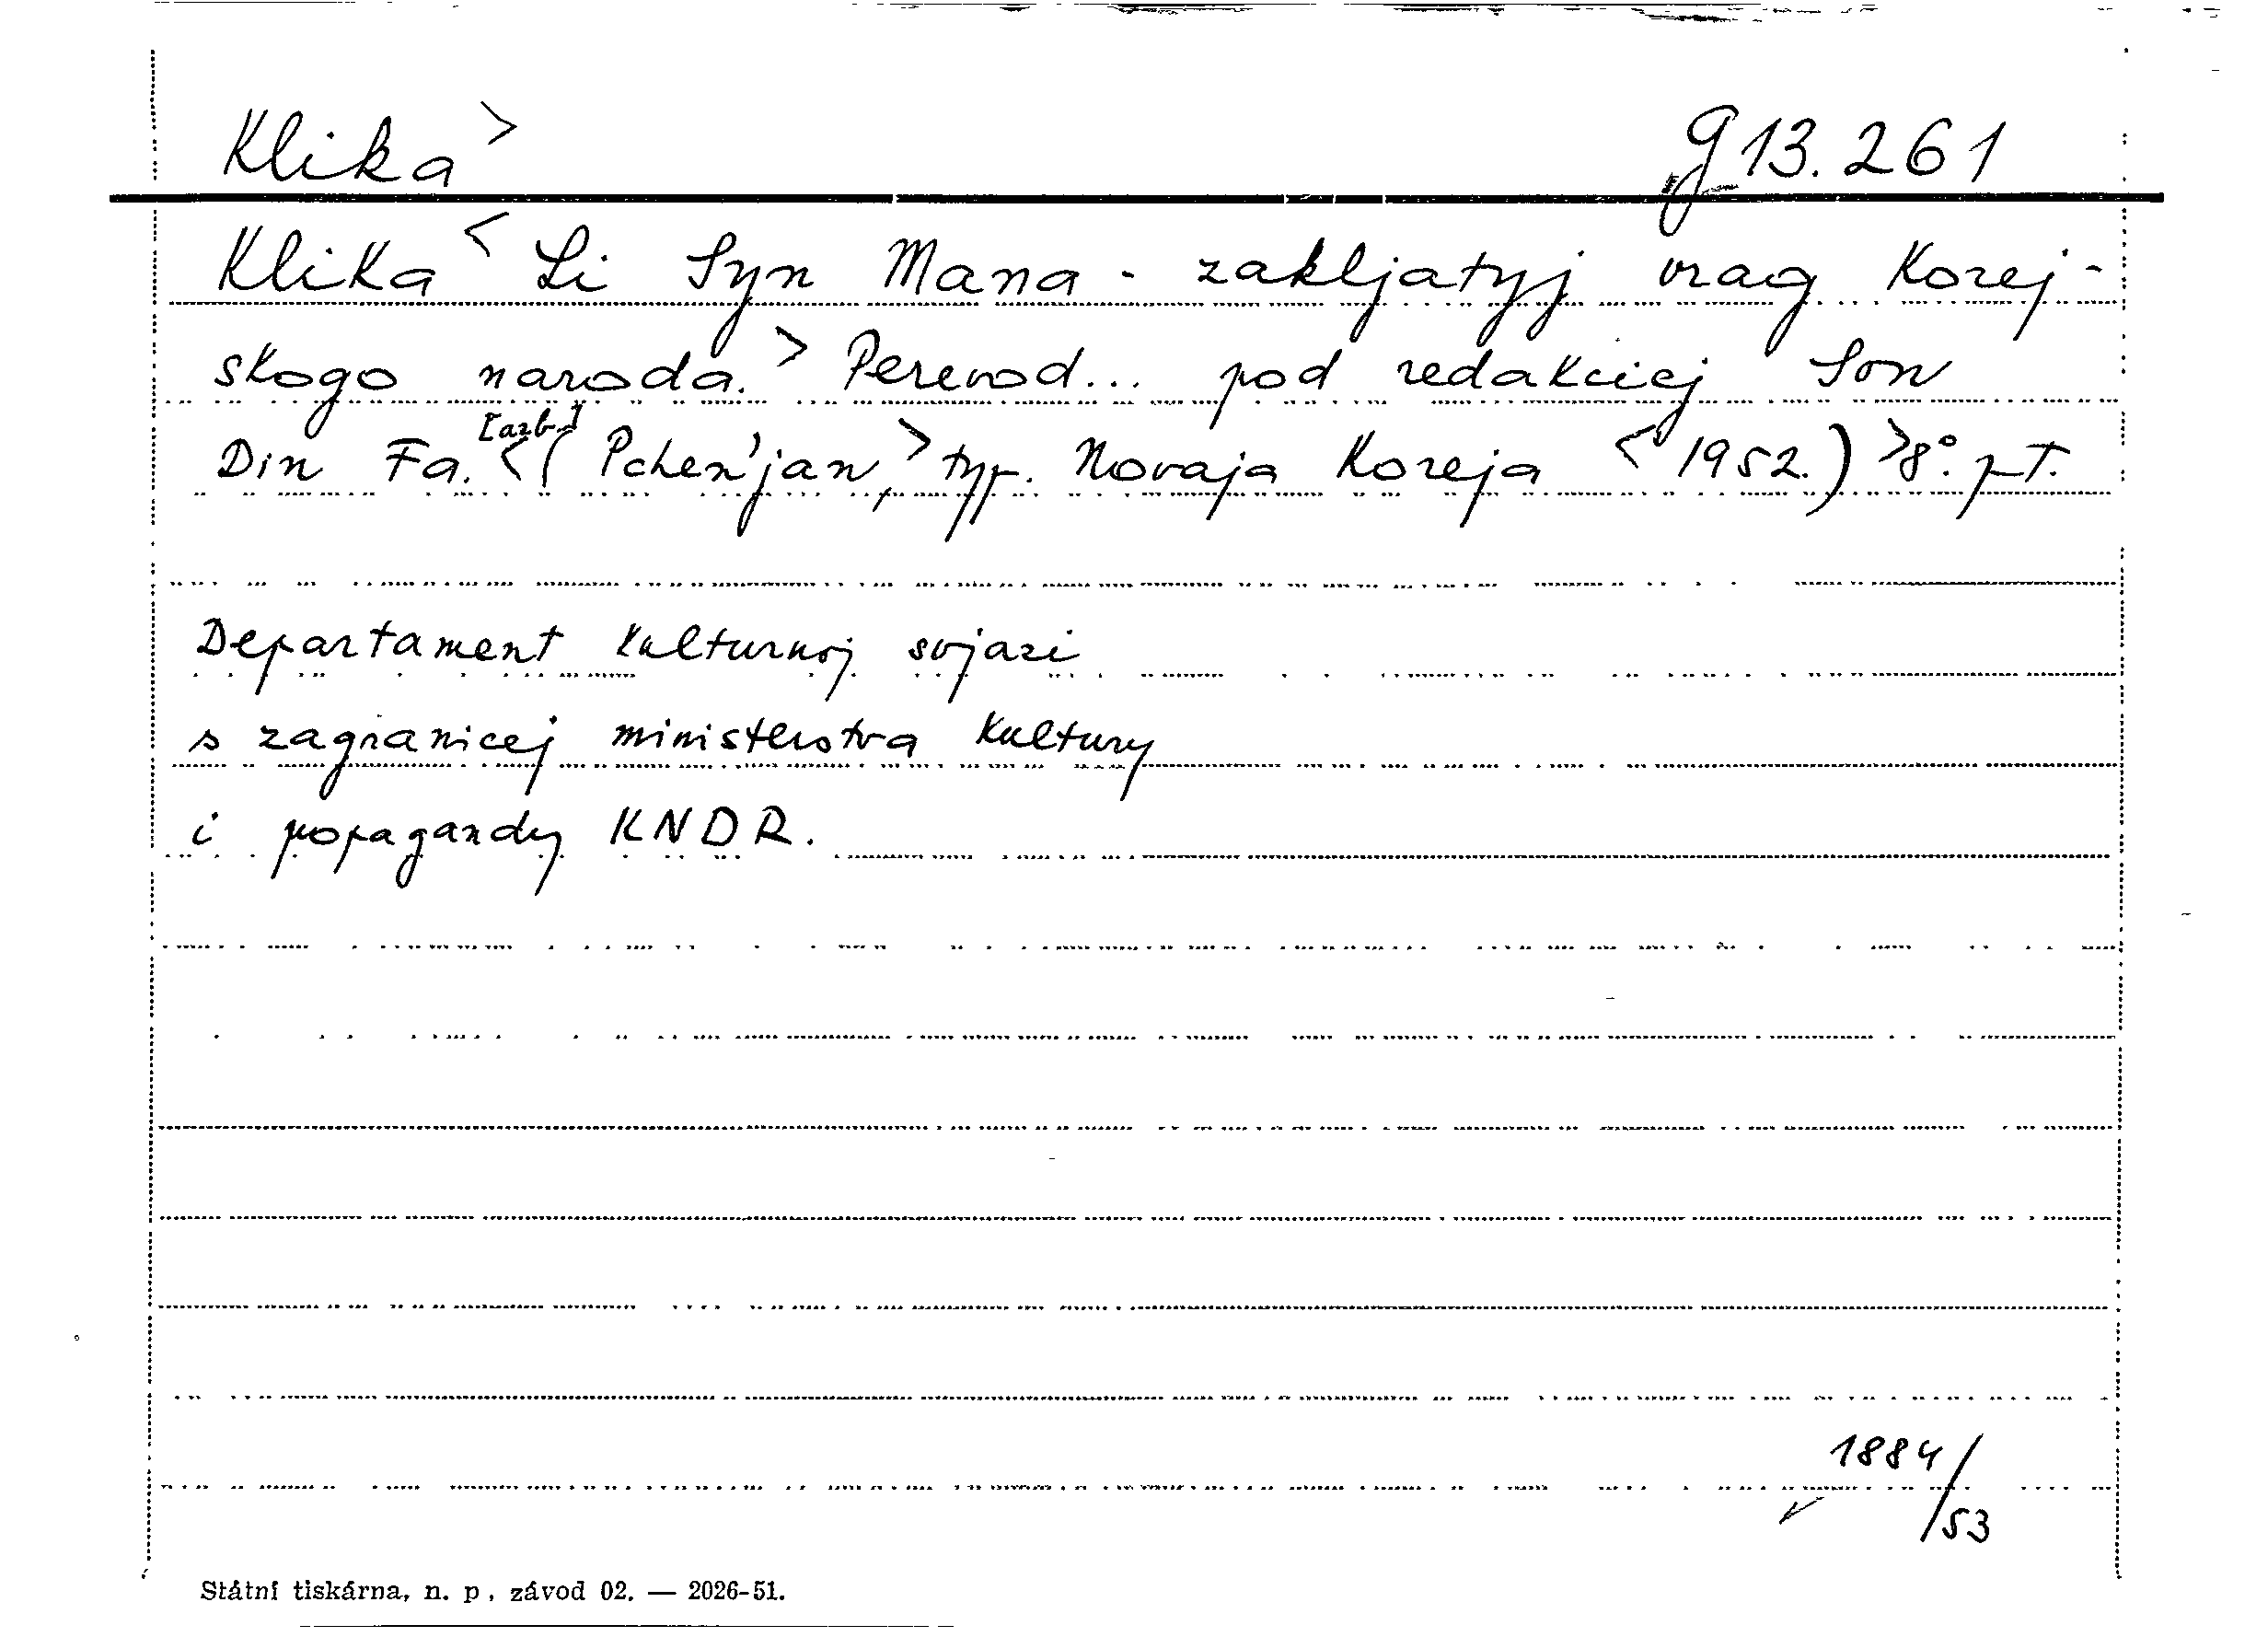 Klika > g 13.261
Klika < Li Syn Mana - zakljatyj vrag Korej-
skogo naroda. > Perevod... pod redakciej Son
[azb.]
Din Fa. < ( Pchen'jan, > typ. Novaja Koreja < 1952.) > 8°. pt.
Departament kulturnoj svjazi
s zagranicej ministerstva kultury
i popagandy KNDR.
1884/
/53
Státní tiskárna, n. p., závod 02. — 2026-51.